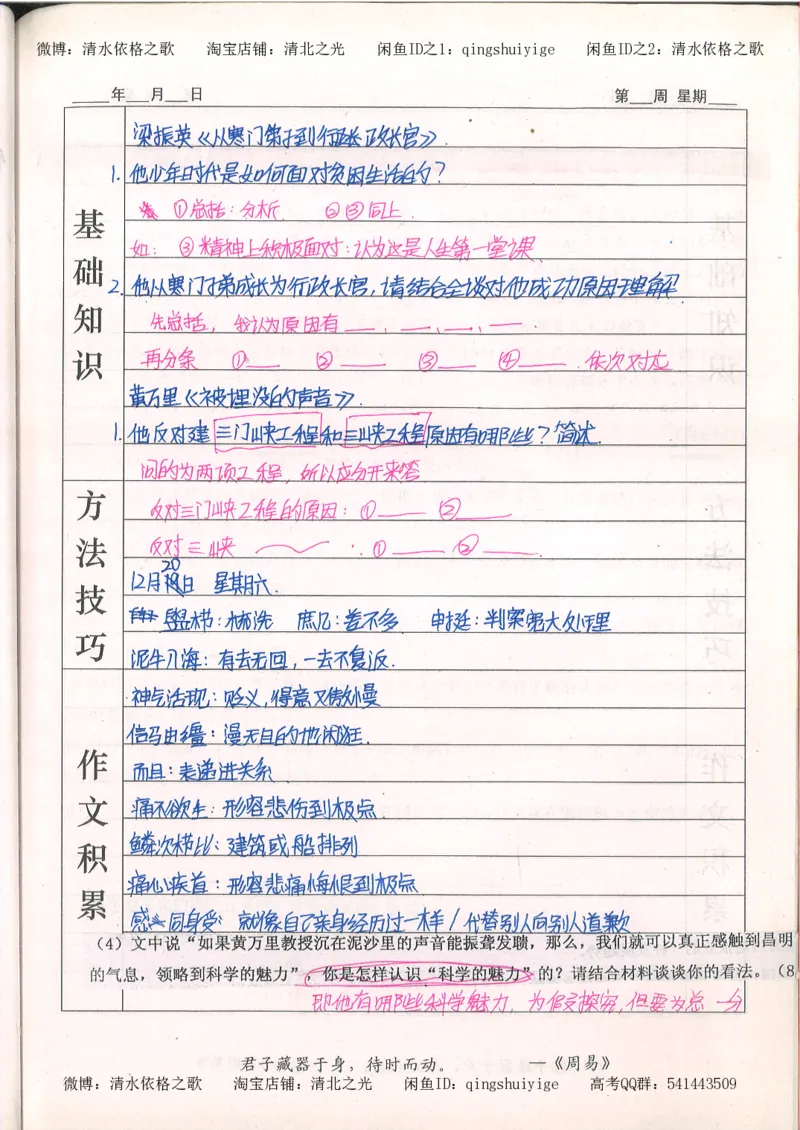 微博：清水依格之歌 淘宝店铺：清北之光 闲鱼ID之1：qingshuiyige 闲鱼ID之2：清水依格之歌
____年___月___日 第___周 星期____
梁振英《从寒门弟子到行政长官》.
1. 他少年时代是如何面对贫困生活的？
①总括：分析. ②③同上.
如：③精神上积极面对：认为这是人生第一堂课
基础知识
2. 他从寒门子弟成长为行政长官，请结合全谈对他成功原因理解
先总括，我认为原因有___、___、___、___.
再分条 ①___ ②____ ③____ ④____. 依次对应
黄万里《被埋没的声音》.
1. 他反对建三门峡工程和三峡工程原因有哪些？简述.
问的为两项工程，所以应分开来答
方法技巧
反对三门峡工程的原因：①____ ②____
反对三峡 ①____ ②____.
12月20日 星期六.
栉：梳洗 庶几：差不多
泥牛入海：有去无回，一去不复返.
神气活现：贬义，得意又傲慢
信马由缰：漫无目的地闲逛.
作文积累
而且：表递进关系
痛不欲生：形容悲伤到极点
鳞次栉比：建筑或船排列
痛心疾首：形容悲痛悔恨到极点
感同身受：就像自己亲身经历过一样/代替别人向别人道歉
（4）文中说“如果黄万里教授沉在泥沙里的声音能振聋发聩，那么，我们就可以真正感触到昌明
的气息，领略到科学的魅力”，你是怎样认识“科学的魅力”的？请结合材料谈谈你的看法。（8
即他有哪些科学魅力，为作文探究，但要为总一分
君子藏器于身，待时而动。 —《周易》
微博：清水依格之歌 淘宝店铺：清北之光 闲鱼ID：qingshuiyige 高考QQ群：541443509